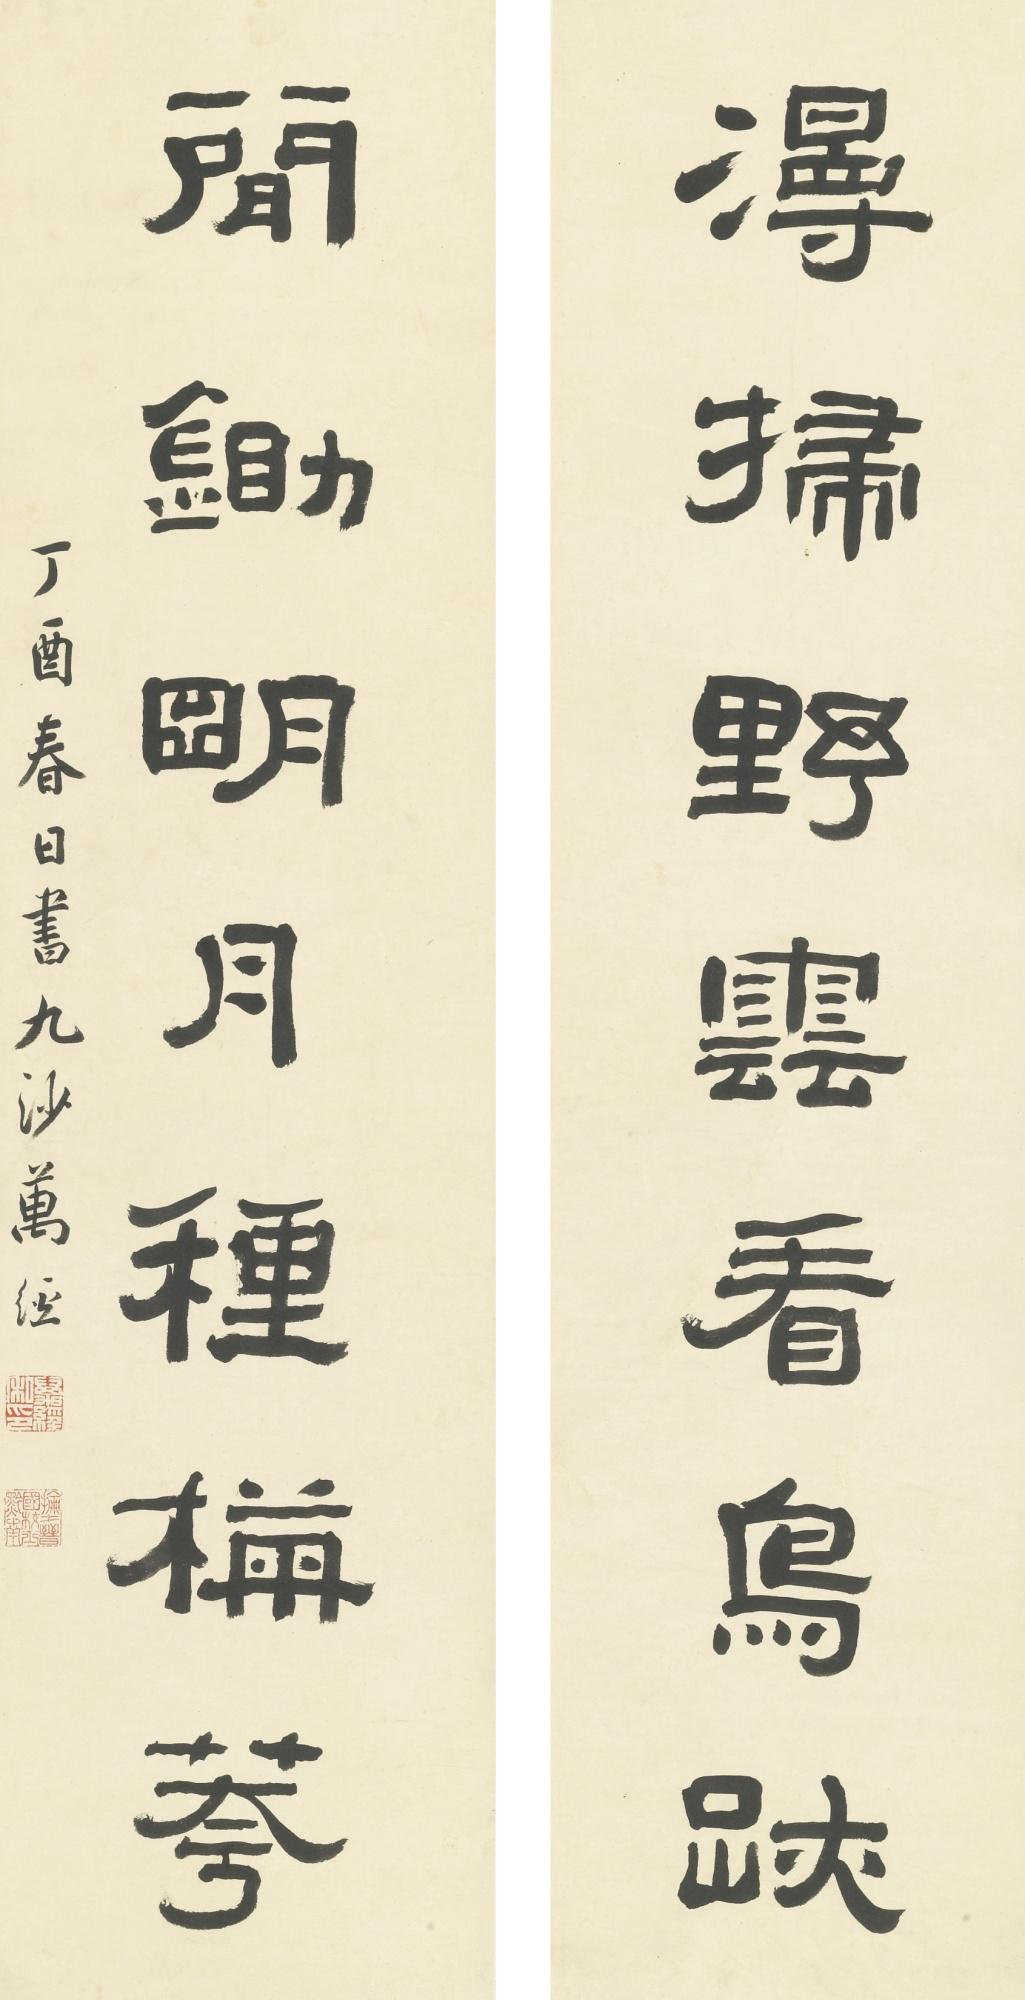 淂掃野雲看鳥跡
閒鋤明月種梅荂
丁酉春日書九沙萬經